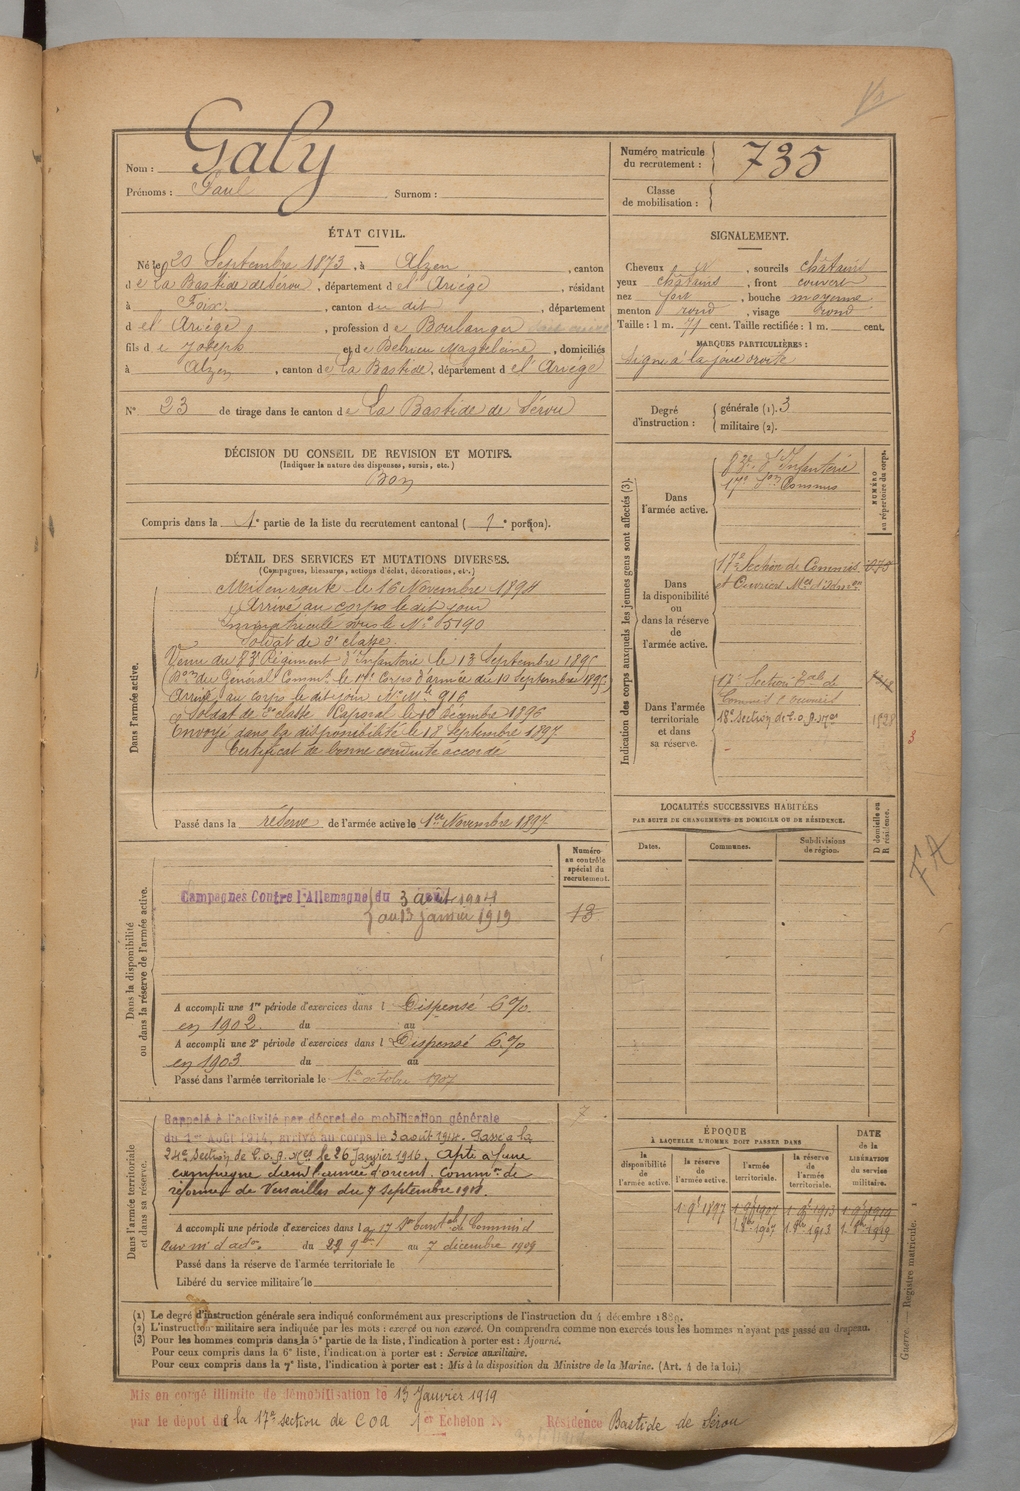 Nom : Galy
Prénoms : Paul Surnom :
Numéro matricule du recrutement : 735
Classe de mobilisation :
ÉTAT CIVIL.
Né le 20 Septembre 1873, à Alzen, canton
de La Bastide de Sérou, département de l'Ariège, résidant
à Foix, canton du dit, département
de l'Ariège, profession de Boulanger
fils de Joseph et de Magdeleine, domiciliés
à Alzen, canton de La Bastide, département de l'Ariège
N° 23 de tirage dans le canton de La Bastide de Sérou
SIGNALEMENT.
Cheveux, sourcils châtains
yeux châtains, front couvert
nez fort, bouche moyenne
menton rond, visage rond
Taille : 1 m. 71 cent. Taille rectifiée : 1 m. cent.
MARQUES PARTICULIÈRES :
Signe à la joue droite
Degré d'instruction : générale (1). 3
militaire (2).
DÉCISION DU CONSEIL DE REVISION ET MOTIFS.
(Indiquer la nature des dispenses, sursis, etc.)
Bon
Compris dans la 1e partie de la liste du recrutement cantonal ( e portion).
DÉTAIL DES SERVICES ET MUTATIONS DIVERSES.
(Campagnes, blessures, actions d'éclat, décorations, etc.)
Dans l'armée active.
Mis en route le 16 Novembre 1894
Arrivé au corps le dit jour
Immatriculé sous le N° 5190
Soldat de 2e classe.
Venu du 83e Régiment d'Infanterie le 13 Septembre 1895
(Bon du Général Commt le 17e Corps d'armée du 10 Septembre 1895)
Arrivé au corps le dit jour N° Mle 916
Soldat de 2e classe Caporal le 10 Décembre 1896
Envoyé dans la disponibilité le 18 Septembre 1897
Certificat de bonne conduite accordé
Passé dans la réserve de l'armée active le 1er Novembre 1897
Indication des corps auxquels les jeunes gens sont affectés (3).
NUMÉRO au répertoire du corps.
Dans l'armée active.
83e d'Infanterie
17e Son Commis
Dans la disponibilité ou dans la réserve de l'armée active.
17e Section de Commis
et Ouvriers
Dans l'armée territoriale et dans sa réserve.
17e Section
18e Section de C.O.A. 1828
3
FA
LOCALITÉS SUCCESSIVES HABITÉES
PAR SUITE DE CHANGEMENTS DE DOMICILE OU DE RÉSIDENCE.
Dates. Communes. Subdivisions de région. D domicile ou R résidence.
Dans la disponibilité ou dans la réserve de l'armée active.
Numéro au contrôle spécial du recrutement.
Campagnes Contre l'Allemagne du 3 août 1914
au 13 Janvier 1919
13
A accompli une 1re période d'exercices dans l Dispensé 6%
en 1902 du au
A accompli une 2e période d'exercices dans l Dispensé 6%
en 1903 du au
Passé dans l'armée territoriale le 1er octobre 1907
Dans l'armée territoriale et dans sa réserve.
7
Rappelé à l'activité par décret de mobilisation générale
du 1er Août 1914, arrivé au corps le 3 août 1914. Passé à la
24e Section de C.O.A. le 26 Janvier 1916. Apte à faire
campagne dans l'armée d'orient. Common de
réforme de Versailles du 7 Septembre 1918.
A accompli une période d'exercices dans la 17
du 22 9bre au 7 décembre 1909
Passé dans la réserve de l'armée territoriale le
Libéré du service militaire le
ÉPOQUE
À LAQUELLE L'HOMME DOIT PASSER DANS
DATE DE LA LIBÉRATION du service militaire.
la disponibilité de l'armée active. la réserve de l'armée active. l'armée territoriale. la réserve de l'armée territoriale.
1. 9bre 1897
1. 8bre 1907 1. 8bre 1913 1. 8bre 1919
(1) Le degré d'instruction générale sera indiqué conformément aux prescriptions de l'instruction du 4 décembre 1889.
(2) L'instruction militaire sera indiquée par les mots : exercé ou non exercé. On comprendra comme non exercés tous les hommes n'ayant pas passé au drapeau.
(3) Pour les hommes compris dans la 5e partie de la liste, l'indication à porter est : Ajourné.
Pour ceux compris dans la 6e liste, l'indication à porter est : Service auxiliaire.
Pour ceux compris dans la 7e liste, l'indication à porter est : Mis à la disposition du Ministre de la Marine. (Art. 4 de la loi.)
Guerre. — Registre matricule. 1
Mis en congé illimité de démobilisation le 13 Janvier 1919
par le dépôt de la 17e section de COA 1er Echelon N Résidence Bastide de Sérou